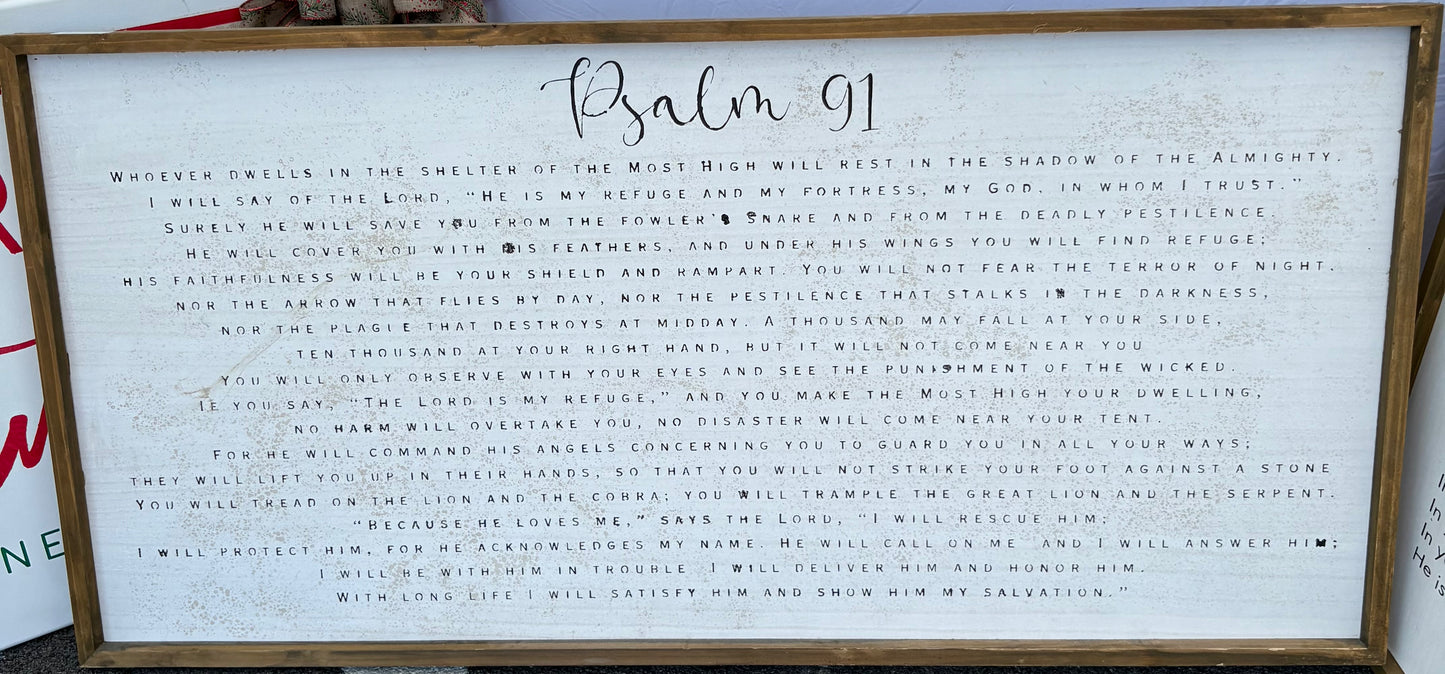 Psalm 91
Whoever dwells in the shelter of the Most High will rest in the shadow of the Almighty.
I will say of the Lord, "He is my refuge and my fortress, my God, in whom I trust."
Surely he will save you from the fowler's Snare and from the deadly pestilence.
He will cover you with his feathers, and under his wings you will find refuge;
his faithfulness will be your shield and rampart. You will not fear the terror of night,
nor the arrow that flies by day, nor the pestilence that stalks in the darkness,
nor the plague that destroys at midday. A thousand may fall at your side,
ten thousand at your right hand, but it will not come near you
You will only observe with your eyes and see the punishment of the wicked.
If you say, "The Lord is my refuge," and you make the Most High your dwelling,
no harm will overtake you, no disaster will come near your tent.
For he will command his angels concerning you to guard you in all your ways;
they will lift you up in their hands, so that you will not strike your foot against a stone
You will tread on the lion and the cobra; you will trample the great lion and the serpent.
"Because he loves me," says the Lord, "I will rescue him;
I will protect him, for he acknowledges my name He will call on me and I will answer him;
I will be with him in trouble I will deliver him and honor him.
With long life I will satisfy him and show him my salvation."
NE
In
In y
He is